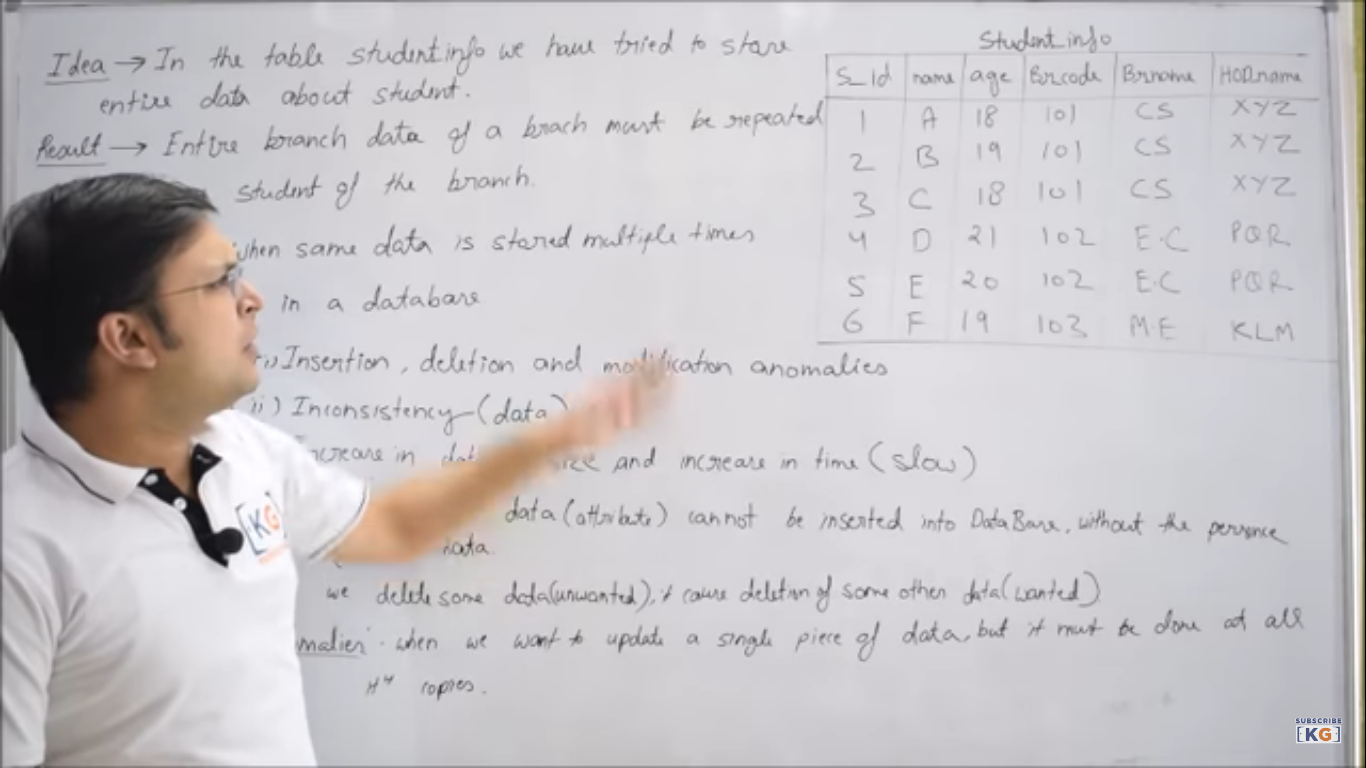 Idea → In the table student info we have tried to store
entire data about student.
Result → Entire branch data of a brach must be repeated
student of the branch.
when same data is stored multiple times
in a database
i) Insertion, deletion and modification anomalies
ii) Inconsistency (data)
Increase in size and increase in time (slow)
data (attribute) cannot be inserted into DataBase, without the
data.
we delete some data (unwanted), it cause deletion of some other data (wanted)
when we want to update a single piece of data, but it must be done at all
copies.
Student info
S_Id name age Brcode Brname HODname
1 A 18 101 CS XYZ
2 B 19 101 CS XYZ
3 C 18 101 CS XYZ
4 D 21 102 E.C PQR
5 E 20 102 E.C PQR
6 F 19 103 M.E KLM
[KG]
SUBSCRIBE
[KG]